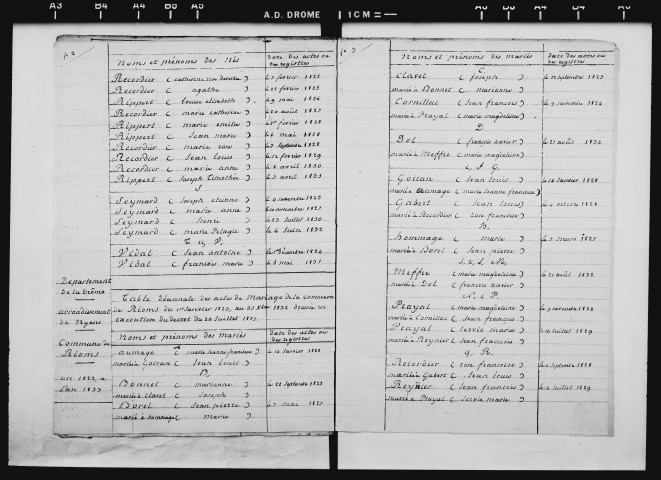 A3 B4 A4 B5 A5 A.D. DROME 1 CM A5 B5 A4 B4 A3
fo 2
Noms et prénoms des Nés date des actes ou des registres
Recordier ( catherine rose dorothée ) février 1823
Recordier ( agathe ) le 22 février 1825
Rippert ( louise elisabeth ) le 9 mai 1826
Recordier ( marie catherine ) le 20 août 1827
Rippert ( marie emilie ) le 1er février 1828
Rippert ( Jean marie ) le 6 mai 1828
Recordier ( marie rose ) septembre 1828
Recordier ( Jean Louis ) le 12 février 1829
Recordier ( marie anne ) le 8 avril 1830
Rippert ( Joseph Timothée ) le 3 avril 1831
S
Seymard ( Joseph etienne ) le 9 novembre 1825
Seymard ( marie anne ) novembre 1827
Seymard ( henri ) le 23 Juillet 1830
Seymard ( marie Pélagie ) le 6 Juin 1832
T. U. V.
Vidal ( Jean antoine ) décembre 1824
Vidal ( françois marie ) le 8 mai 1831
Département de la Drôme
arrondissement de Nyons
Commune de Rioms
an 1823, à l'an 1833
Table décennale des actes de Mariage de la commune
de Rioms, du 1er Janvier 1823, au 31 Xbre 1832 dressée en
exécution du décret du 20 Juillet 1807.
Noms et prénoms des mariés date des actes ou des registres
A
aumage ( marie Jeanne françoise ) le 10 Janvier 1828
mariée à Goiran ( Jean Louis )
B.
Bonnet ( marianne ) le 22 Septembre 1823
mariée à Clarel ( Joseph )
Borel ( Jean pierre ) mai 1827
marié à hommage ( Marie )
fo 3
Noms et prénoms des mariés date des actes ou des registres
C.
Clarel ( Joseph ) le 22 Septembre 1823
marié à Bonnet ( marianne )
Cornillac ( Jean françois ) le 9 novembre 1824
marié à Playal ( marie magdeleine )
D
Dol ( françois xavier ) le 21 août 1832
marié à Meffre ( marie magdeleine )
Goiran ( Jean Louis ) le 10 Janvier 1828
marié à aumage ( marie Jeanne françoise )
Gabert ( Jean Louis ) octobre 1828
marié à Recordier ( rose françoise )
H.
hommage ( marie ) mars 1827
mariée à Borel ( Jean Pierre )
Meffre ( marie magdeleine ) le 21 août 1832
mariée à Dol ( françois xavier )
N. O. P.
Playal ( marie magdeleine ) le 9 novembre 1824
mariée à Cornillac ( Jean françois )
Playal ( Servie marie ) Juillet 1829
mariée à Reynier ( Jean françois )
Q. R.
Recordier ( rose françoise ) Septembre 1828
mariée à Gabert ( Jean Louis )
Reynier ( Jean françois ) Juillet 1829
marié à Playal ( Servie marie )